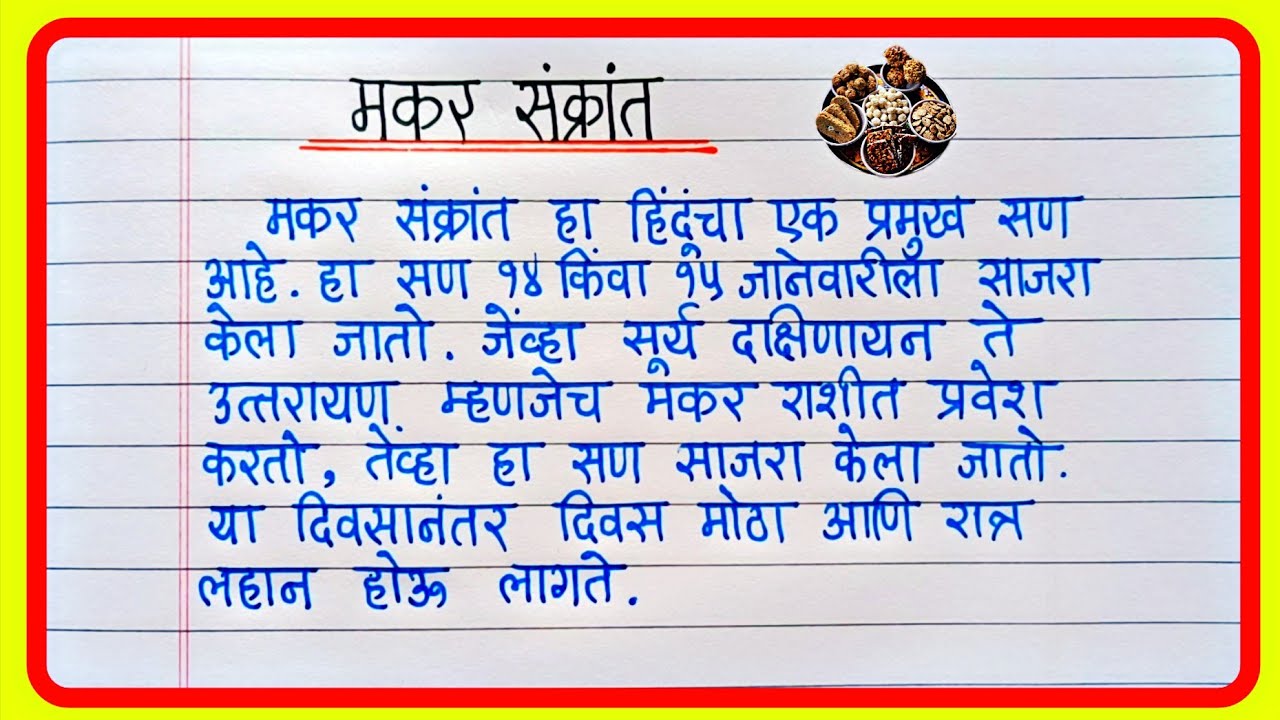 मकर संक्रांत
मकर संक्रांत हा हिंदूंचा एक प्रमुख सण
आहे. हा सण १४ किंवा १५ जानेवारीला साजरा
केला जातो. जेंव्हा सूर्य दक्षिणायन ते
उत्तरायण म्हणजेच मकर राशीत प्रवेश
करतो, तेव्हा हा सण साजरा केला जातो.
या दिवसानंतर दिवस मोठा आणि रात्र
लहान होऊ लागते.